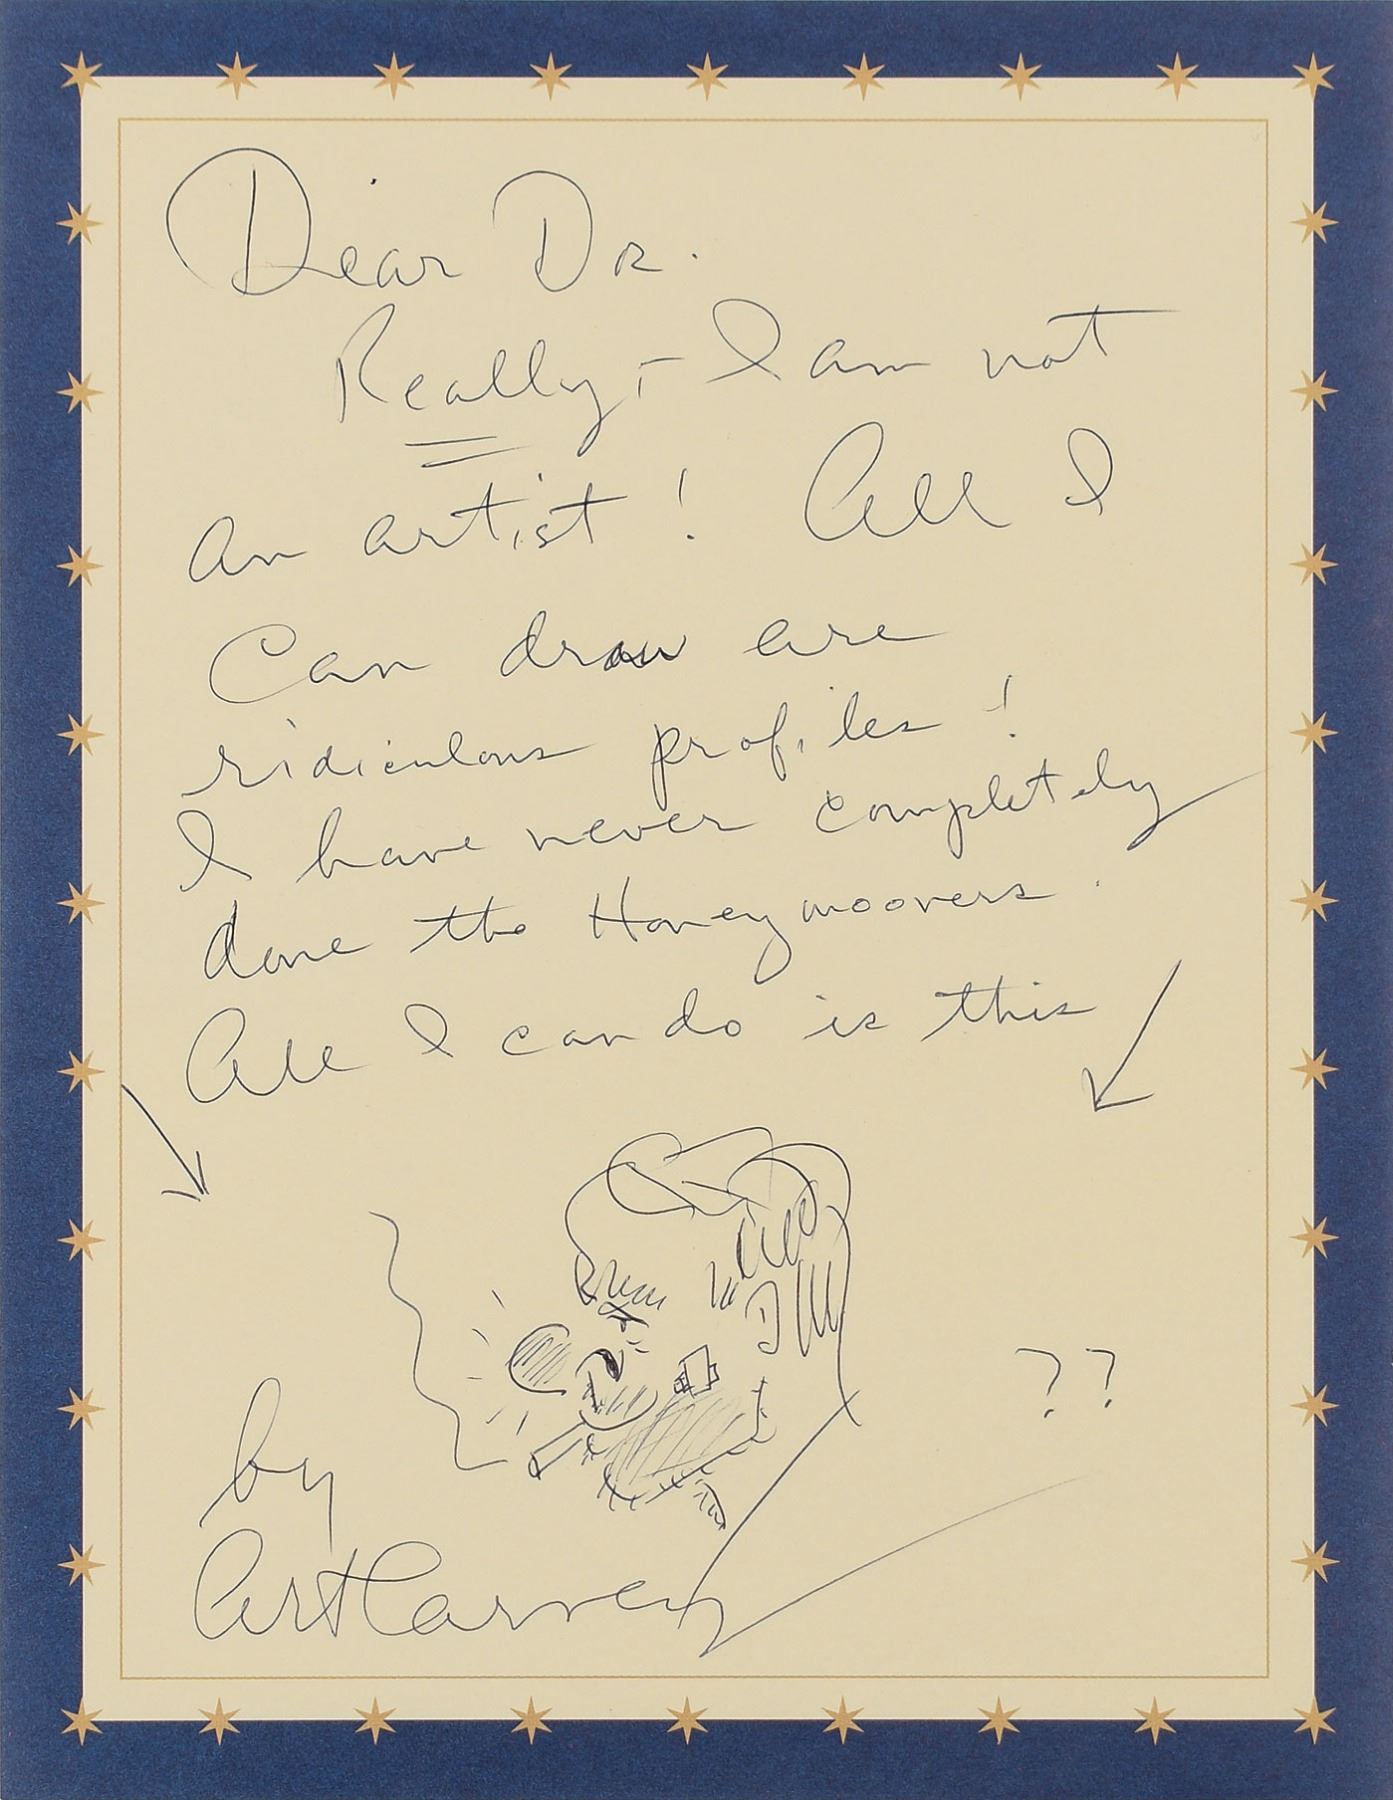 Dear Dr.
Really, - I am not
an artist! All I
Can draw are
ridiculous profiles!
I have never completely
done the Honeymooners.
All I can do is this
??
by
Art Carney